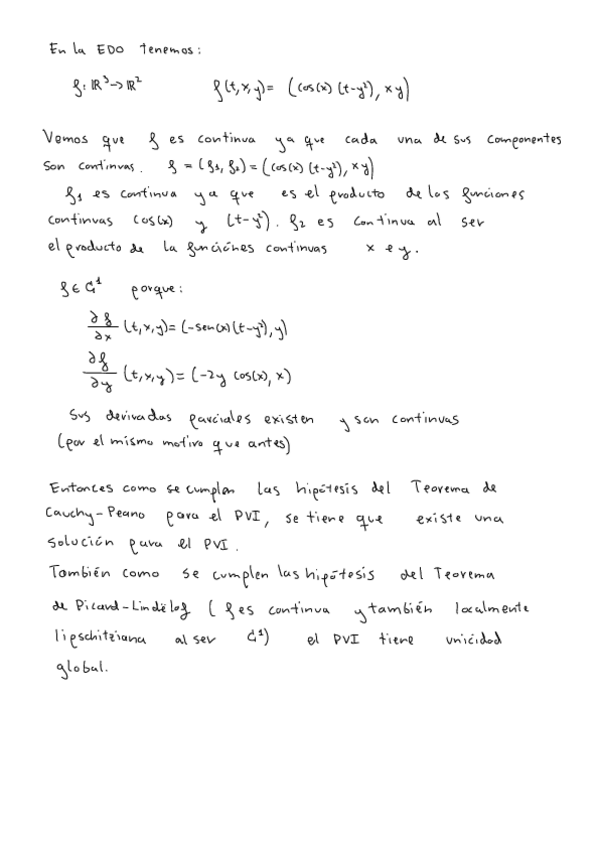 En la EDO tenemos:
f: ℝ³→ℝ² f(t,x,y)= (cos(x) (t-y²), xy)
Vemos que f es continua ya que cada una de sus componentes
son continuas. f = (f₁, f₂) = (cos(x) (t-y²), xy)
f₁ es continua ya que es el producto de las funciones
continuas cos(x) y (t-y²). f₂ es continua al ser
el producto de la funciónes continuas x e y.
f ∈ C¹ porque:
∂f/∂x (t,x,y)= (-sen(x)(t-y²), y)
∂f/∂y (t,x,y)= (-2y cos(x), x)
Sus derivadas parciales existen y son continuas
(por el mismo motivo que antes)
Entonces como se cumplen las hipótesis del Teorema de
Cauchy-Peano para el PVI, se tiene que existe una
solución para el PVI.
También como se cumplen las hipótesis del Teorema
de Picard-Lindëlof (f es continua y también localmente
lipschitziana al ser C¹) el PVI tiene unicidad
global.